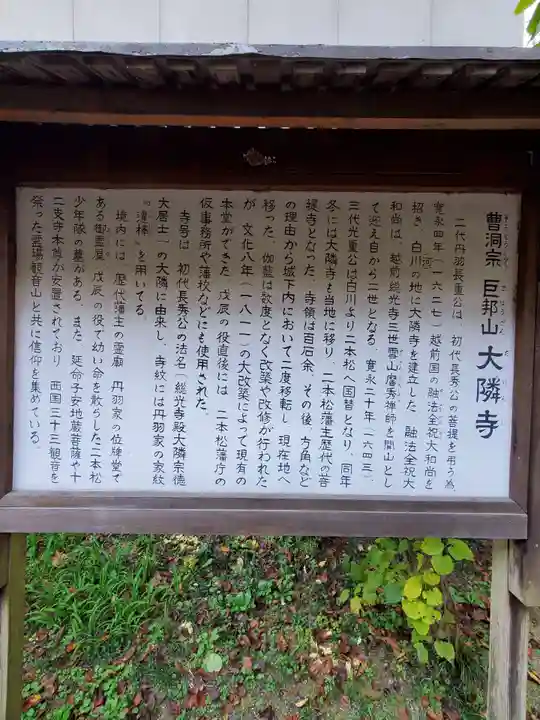 曹洞宗 巨邦山 大隣寺
二代丹羽長重公は、初代長秀公の菩提を弔う為、
寛永四年(一六二七)越前国の融法全祝大和尚を
招き、白河の地に大隣寺を建立した。融法全祝大
和尚は、越前総光寺三世雪山信秀禅師を開山とし
て迎え自から二世となる。寛永二十年(一六四三)、
三代光重公は白川より二本松へ国替となり、同年
冬には大隣寺も当地に移り、二本松藩主歴代の菩
提寺となった。寺領は百石余、その後、方角など
の理由から城下内において二度移転し、現在地へ
移った。伽藍は幾度となく改築や改修が行われた
が、文化八年(一八一一)の大改築によって現有の
本堂ができた。戊辰の役直後には、二本松藩庁の
仮事務所や藩校などにも使用された。
寺号は、初代長秀公の法名(総光寺殿大隣宗徳
大居士)の大隣に由来し、寺紋には丹羽家の家紋
「違棒」を用いてる。
境内には、歴代藩主の霊廟、丹羽家の位牌堂で
ある御霊屋、戊辰の役で幼い命を散らした二本松
少年隊の墓がある。また、延命子安地蔵菩薩や十
二支守本尊が安置されており、西国三十三観音を
祭った霊場観音山と共に信仰を集めている。